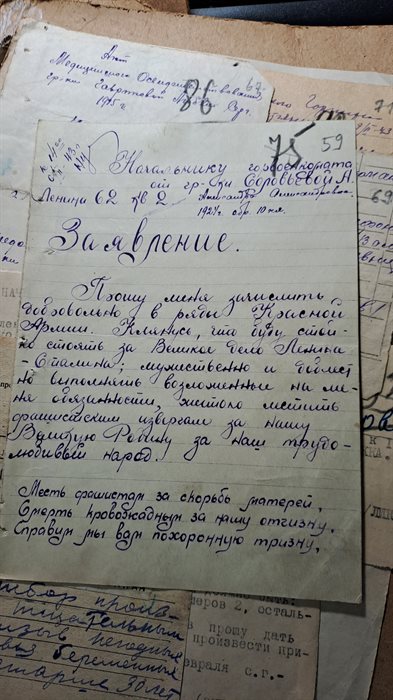 Акт
Медицинского Освидетельствования
гр-ки
1945 г.
86
67
71
75
59
Начальнику горвоенкомата
от гр-ки Соловьёвой А.
Ленина 62 кв 2
Александра Александровна
1924 г. обр. 10 кл.
Заявление.
Прошу меня зачислить
добровольно в ряды Красной
Армии. Клянусь, что буду стой-
ко стоять за Великое дело Ленина
-Сталина; мужественно и доблест
но выполнять возложенные на ме-
ня обязанности, жестоко мстить
фашистским извергам за нашу
Великую Родину за наш трудо-
любивый народ.
Месть фашистам за скорбь матерей,
Смерть кровожадным за нашу отчизну.
Справим мы вам похоронную тризну,
69
меров 2, осталь-
прошу дать
произвести при-
евраля с.г.-
тщательным
призыв негодные
беременные
старше 30 лет